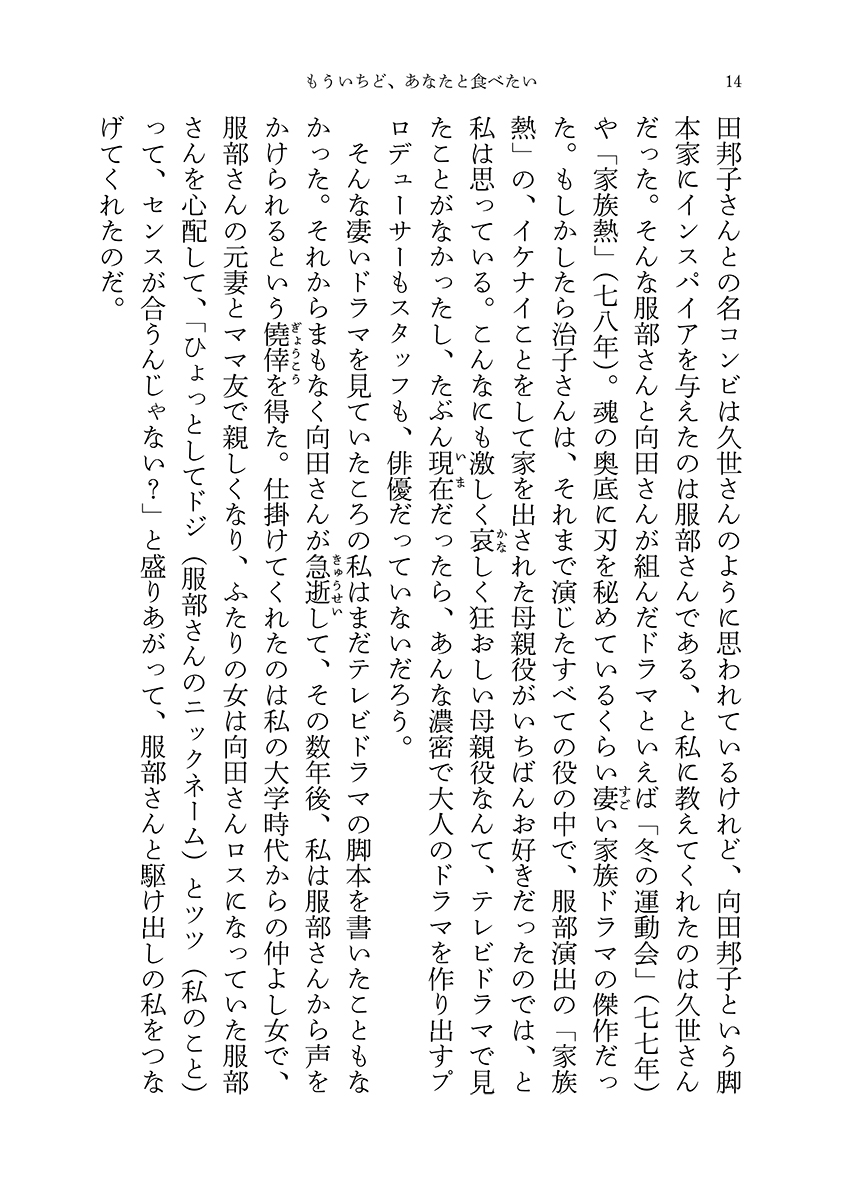 もういちど、あなたと食べたい
14
田邦子さんとの名コンビは久世さんのように思われているけれど、向田邦子という脚
本家にインスパイアを与えたのは服部さんである、と私に教えてくれたのは久世さん
だった。そんな服部さんと向田さんが組んだドラマといえば「冬の運動会」（七七年）
や「家族熱」（七八年）。魂の奥底に刃を秘めているくらい凄い家族ドラマの傑作だっ
すご
た。もしかしたら治子さんは、それまで演じたすべての役の中で、服部演出の「家族
熱」の、イケナイことをして家を出された母親役がいちばんお好きだったのでは、と
私は思っている。こんなにも激しく哀しく狂おしい母親役なんて、テレビドラマで見
かな
たことがなかったし、たぶん現在だったら、あんな濃密で大人のドラマを作り出すプ
いま
ロデューサーもスタッフも、俳優だっていないだろう。
そんな凄いドラマを見ていたころの私はまだテレビドラマの脚本を書いたこともな
かった。それからまもなく向田さんが急逝して、その数年後、私は服部さんから声を
きゅうせい
かけられるという僥倖を得た。仕掛けてくれたのは私の大学時代からの仲よし女で、
ぎょうこう
服部さんの元妻とママ友で親しくなり、ふたりの女は向田さんロスになっていた服部
さんを心配して、「ひょっとしてドジ（服部さんのニックネーム）とツツ（私のこと）
って、センスが合うんじゃない？」と盛りあがって、服部さんと駆け出しの私をつな
げてくれたのだ。